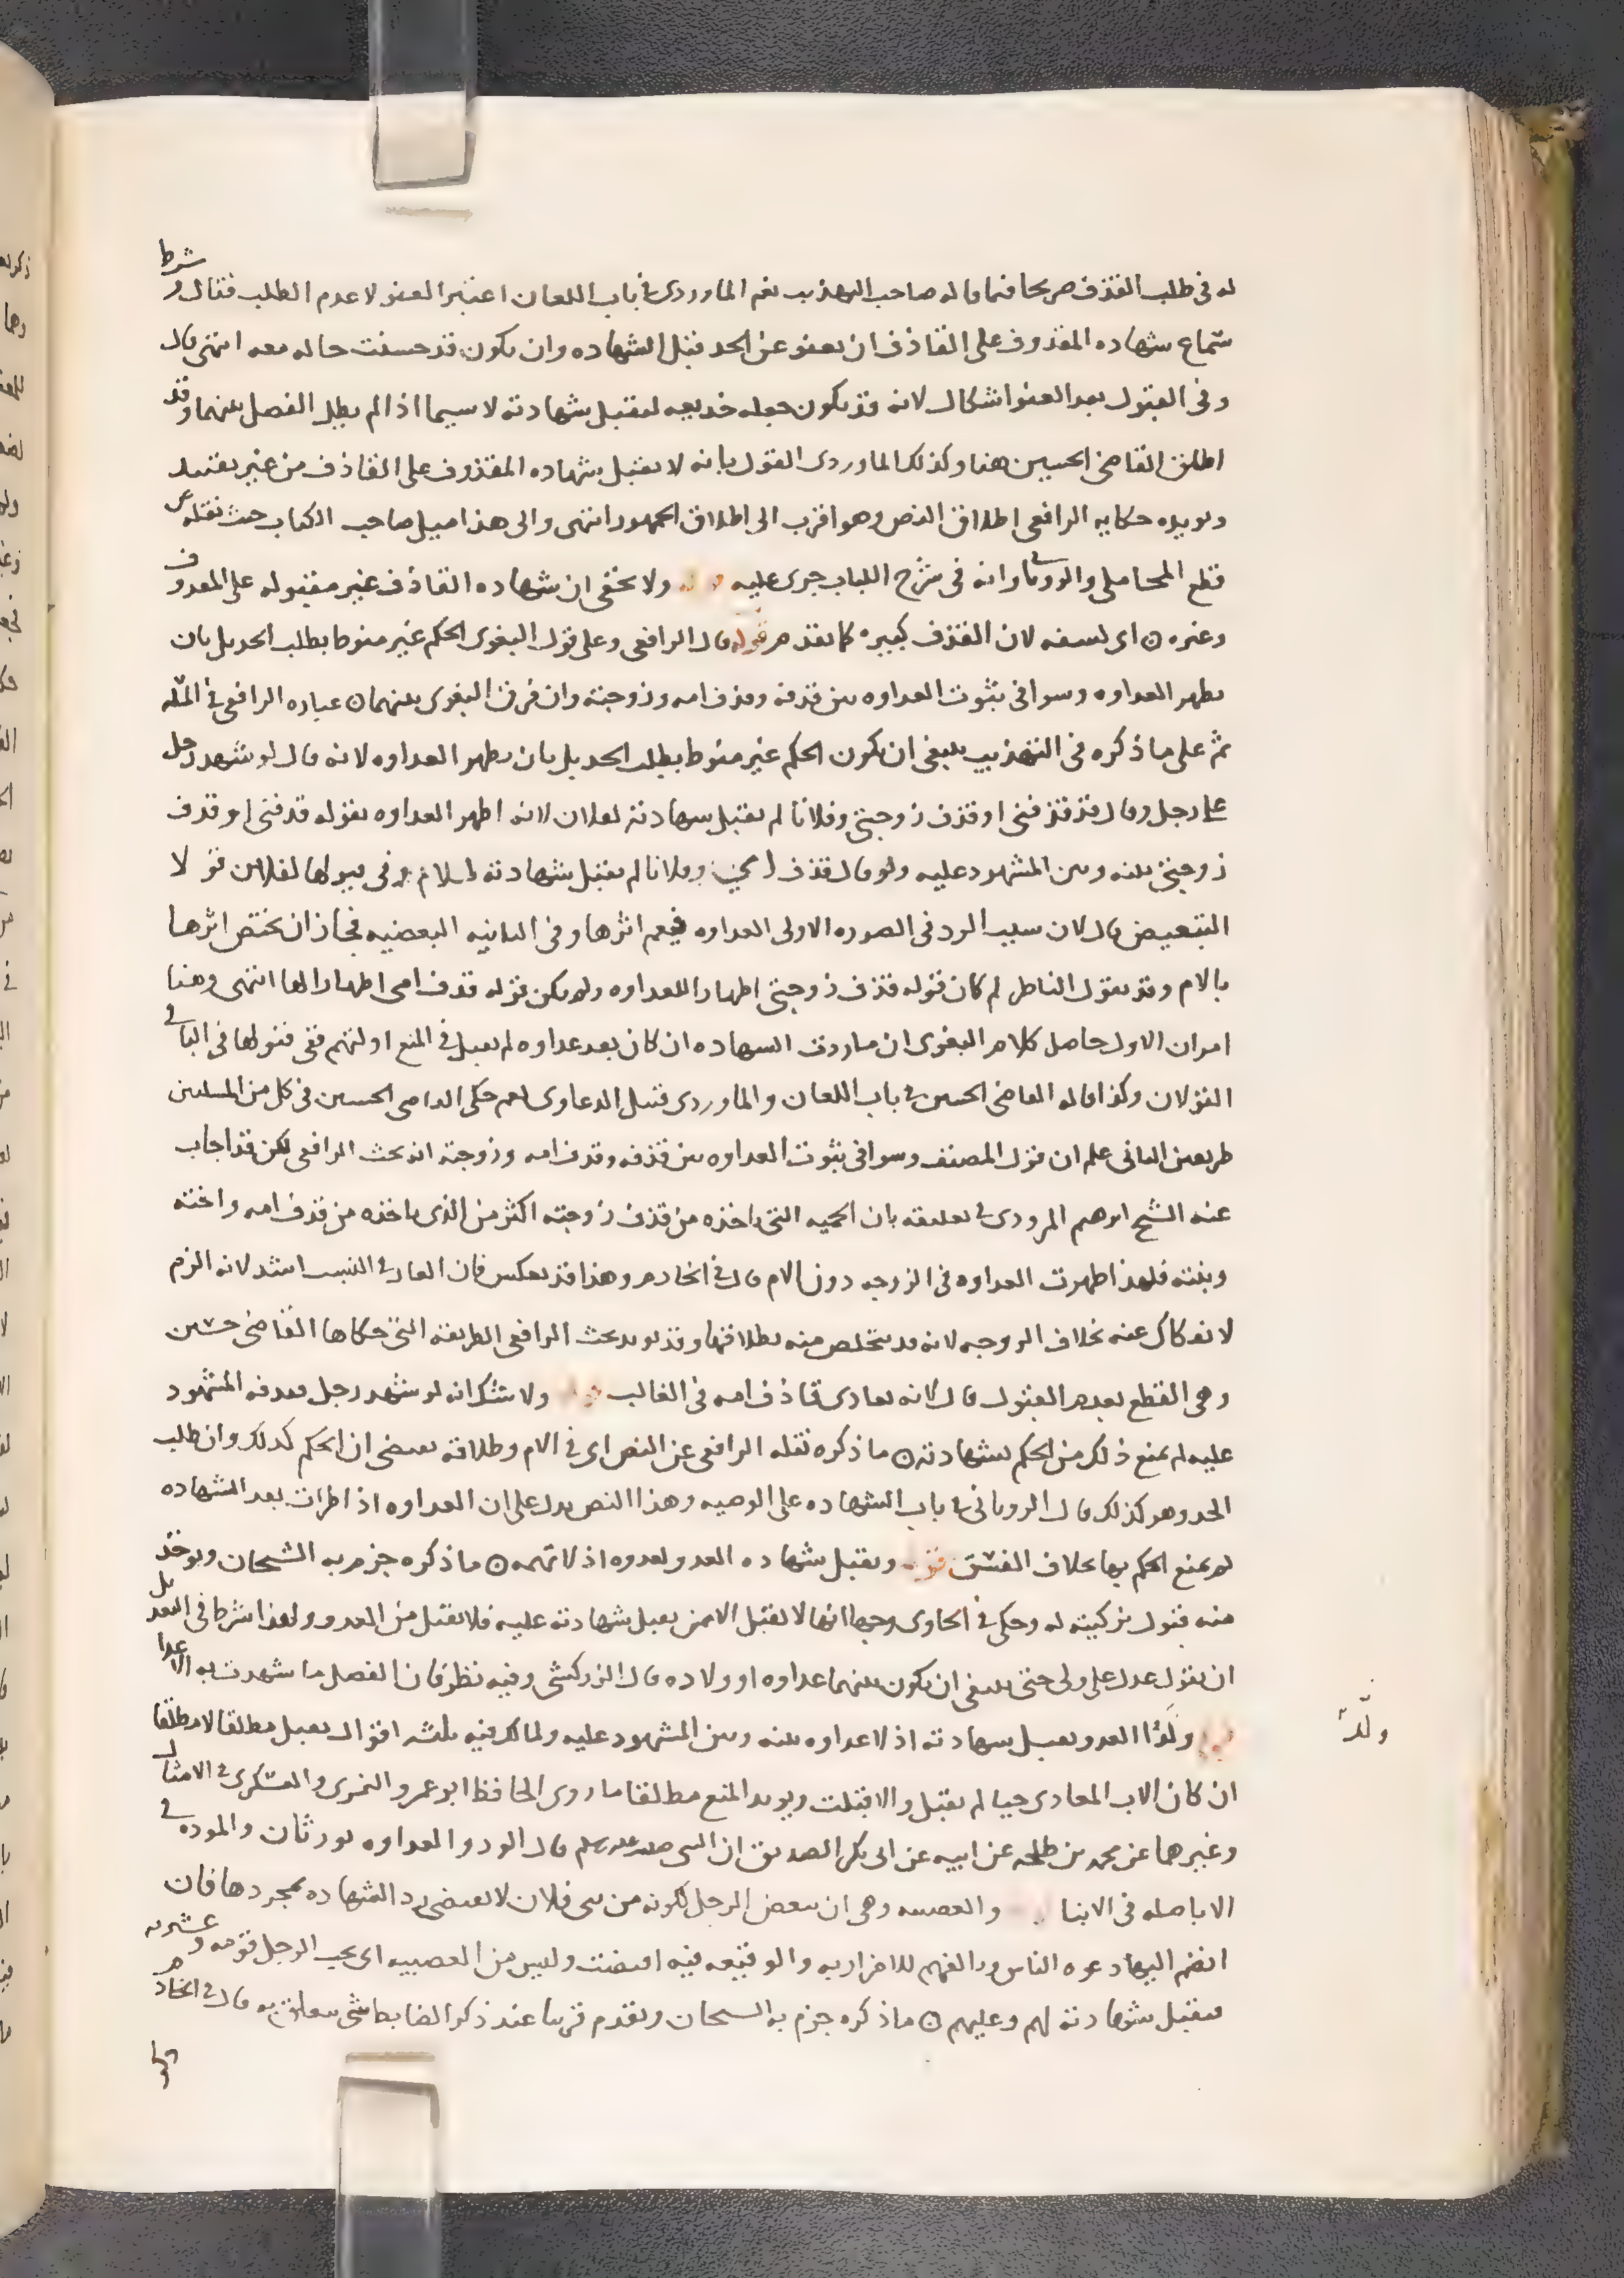 له في طلب القذف صريحا فيما قاله صاحب التهذيب نعم الماوردي في باب اللعان اعتبر العفو لا عدم الطلب فقال وشرط
سماع شهاده المقذوف على القاذف ان يعفو عن الحد قبل الشهاده وان يكون قد حسنت حاله معه انتهى قال
وفي القبول بعد العفو اشكال لانه قد يكون جعله خديعه لتقبل شهادته لا سيما اذا لم يطل الفصل بينهما وقد
اطلق القاضي الحسين هنا وكذلك الماوردي القول بانه لا تقبل شهاده المقذوف على القاذف من غير تقييد
ويويده حكايه الرافعي اطلاق النص وهو اقرب الى اطلاق الجمهور انتهى والى هذا ميل صاحب الكتاب حيث نقله عن
قطع المحاملي والروياني وانه في شرح اللباب جرى عليه قوله ولا يخفى ان شهاده القاذف غير مقبوله على المقذوف
وغيره ه اي لفسقه لان القذف كبيره كما تقدم قوله قال الرافعي وعلى قول البغوي الحكم غير منوط بطلب الحد بل بان
يظهر العداوه وسوا في ثبوت العداوه بين قذفه وقذف امه وزوجته وان فرق البغوي بينهما ه عباره الرافعي في المسله
ثم على ما ذكره في التهذيب ينبغي ان يكون الحكم غير منوط بطلب الحد بل بان يظهر العداوه لانه قال لو شهد رجل
على رجل وقال قد قذفني او قذف زوجتي وفلانا لم تقبل شهادته لفلان لانه اظهر العداوه بقوله قذفني او قذف
زوجتي بينه وبين المشهود عليه ولو قال قذف امي وفلانا لم تقبل شهادته للام وفي قبولها لفلان قولا
التبعيض قال لان سبب الرد في الصوره الاولى العداوه فيعم اثرها وفي الثانيه البعضيه فجاز ان يختص اثرها
بالام وقد يقول الناظر لم كان قوله قذف زوجتي اظهارا للعداوه ولم يكن قوله قذف امي اظهارا لها انتهى وهنا
امران الاول حاصل كلام البغوي ان ما ردت الشهاده ان كان بعد عداوه لم يقبل في المنع او لتهم ففي قبولها في الباقي
القولان وكذا قاله القاضي الحسين في باب اللعان والماوردي قبيل الدعاوى نعم حكى القاضي الحسين في كل من المسلتين
طريقين الثاني علم ان قول المصنف وسوا في ثبوت العداوه بين قذفه وقذف امه وزوجته انه بحث الرافعي لكن قد اجاب
عنه الشيخ ابرهيم المرودي في تعليقه بان الحميه التي تاخذه من قذف زوجته اكثر من الذي تاخذه من قذف امه واخته
وبنته فلهذا اظهرت العداوه في الزوجه دون الام قال في الخادم وهذا قد يعكس فان العار في النسب اشد لانه الزم
لا انفكاك عنه بخلاف الزوجه لانه قد يتخلص منه بطلاقها وقد يويد بحث الرافعي الطريقه التي حكاها القاضي حسين
وهي القطع بعدم القبول قال لانه يعادي قاذف امه في الغالب قوله ولا شك انه لو شهد رجل فقذفه المشهود
عليه لم يمنع ذلك من الحكم بشهادته ه ما ذكره نقله الرافعي عن النص اي في الام وطلاقه يقتضي ان الحكم كذلك وان طلب
الحد وهو كذلك قال الروياني في باب الشهاده على الوصيه وهذا النص يدل على ان العداوه اذا طرات بعد الشهاده
لم يمنع الحكم بها بخلاف الفسق قوله وتقبل شهاده العدو لعدوه اذ لا تهمه ه ما ذكره جزم به الشيخان ويوخذ
منه قبول تزكيته له وحكى في الحاوي وجها انها لا تقبل الا ممن يقبل شهادته عليه فلا تقبل من العدو ولهذا شرطا في التعديل
ان يقول عدل علي ولي حتى ينبغي ان يكون بينهما عداوه او ولاده قال الزركشي وفيه نظر فان الفضل ما شهدت به الاعدا
قوله وولدا العدو تقبل شهادته اذ لا عداوه بينه وبين المشهود عليه ولمالك فيه ثلثه اقوال يقبل مطلقا لا مطلقا
ان كان الاب المعادي حيا لم تقبل والا قبلت ويويد المنع مطلقا ما روى الحافظ ابو عمرو النمري والعسكري في الامثال
وغيرهما عن محمد بن طلحه عن ابيه عن ابي بكر الصديق ان النبي صلى الله عليه وسلم قال الود والعداوه يورثان والموده في
الابا صله في الابنا قوله والعصبيه وهي ان يبغض الرجل لكونه من بني فلان لا يقتضي رد الشهاده بمجردها فان
انضم اليها دعوه الناس وتالفهم للاضرار به والوقيعه فيه اقتضت وليس من العصبيه اي يحب الرجل قومه وعشيرته
فتقبل شهادته لهم وعليهم ه ما ذكره جزم به الشيخان وتقدم قريبا عند ذكر الضابط شي يتعلق به قال في الخادم
ولد